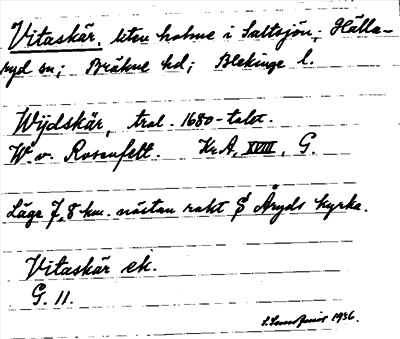 Vitaskär, liten holme i Saltsjön; Hälla-
ryd sn; Bräkne hd; Blekinge l.
Wijdskär, trol. 1680-talet.
W. v. Rosenfelt. Kr.A, XVIII, G.
Läge 7,8 km. nästan rakt S Åryds kyrka.
Vitaskär ek.
G. 11.
1936.